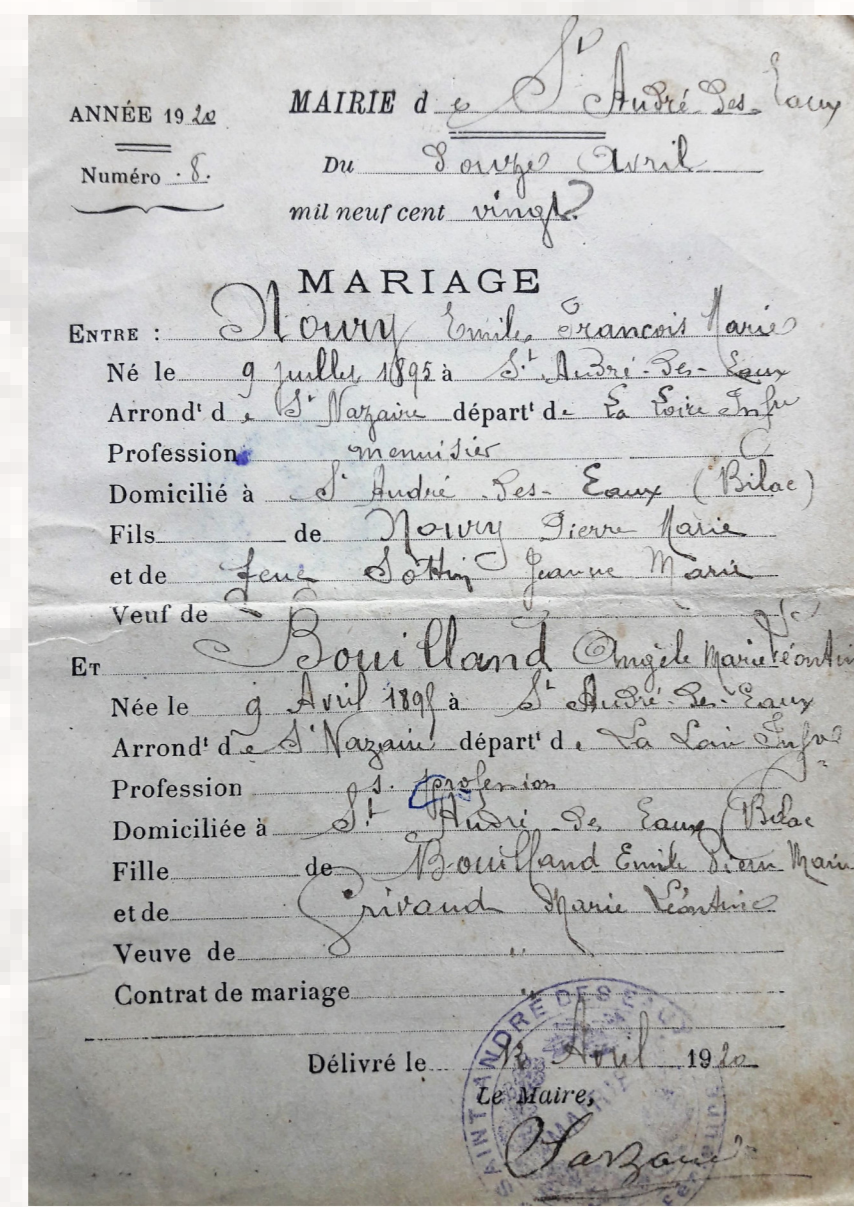 ANNÉE 1920
MAIRIE de St André-des-Eaux
Numéro 8.
Du Douze Avril
mil neuf cent vingt
MARIAGE
ENTRE : Noury Emile François Marie
Né le 9 juillet 1895 à St André-des-Eaux
Arrondt de St Nazaire départt de La Loire Infre
Profession menuisier
Domicilié à St André des-Eaux (Bilac)
Fils de Noury Pierre Marie
et de feue Jeanne Marie
Veuf de
ET Bouilland Angèle Marie Léontine
Née le 9 Avril à St André-des-Eaux
Arrondt de St Nazaire départt de La Loire Infre
Profession s. profession
Domiciliée à St André des Eaux (Bilac
Fille de Bouilland Emile Pierre Marie
et de Grivaud Marie Léontine
Veuve de "
Contrat de mariage "
Délivré le Avril 1920
Le Maire,
SAINT ANDRÉ DES EAUX
MAIRIE